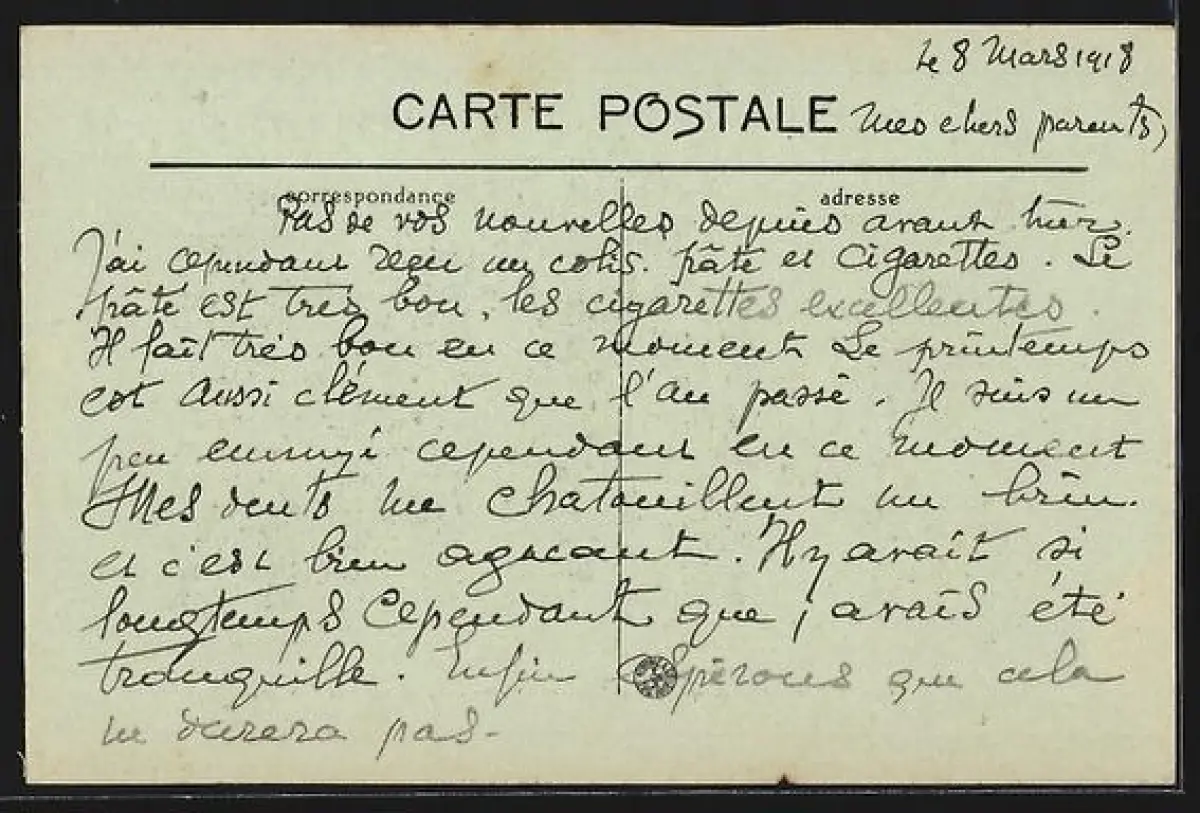 Le 8 Mars 1918
CARTE POSTALE
Mes chers parents,
correspondance
adresse
Pas de vos nouvelles depuis avant hier.
J'ai cependant reçu un colis. pâté et cigarettes. Le
pâté est très bon, les cigarettes excellentes.
Il fait très bon en ce moment Le printemps
est aussi clément que l'an passé. Je suis un
peu ennuyé cependant en ce moment
Mes dents me chatouillent un brin.
et c'est bien agacant. Il y avait si
longtemps cependant que j'avais été
tranquille. Enfin espérons que cela
ne durera pas-